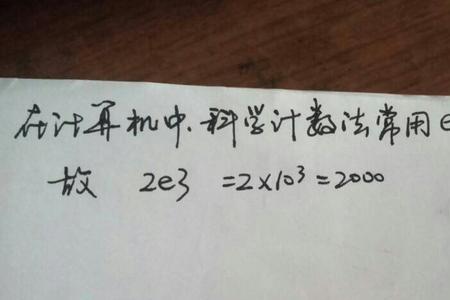 在计算机中.科学计数法常用e
故 2e3 =2×10³=2000